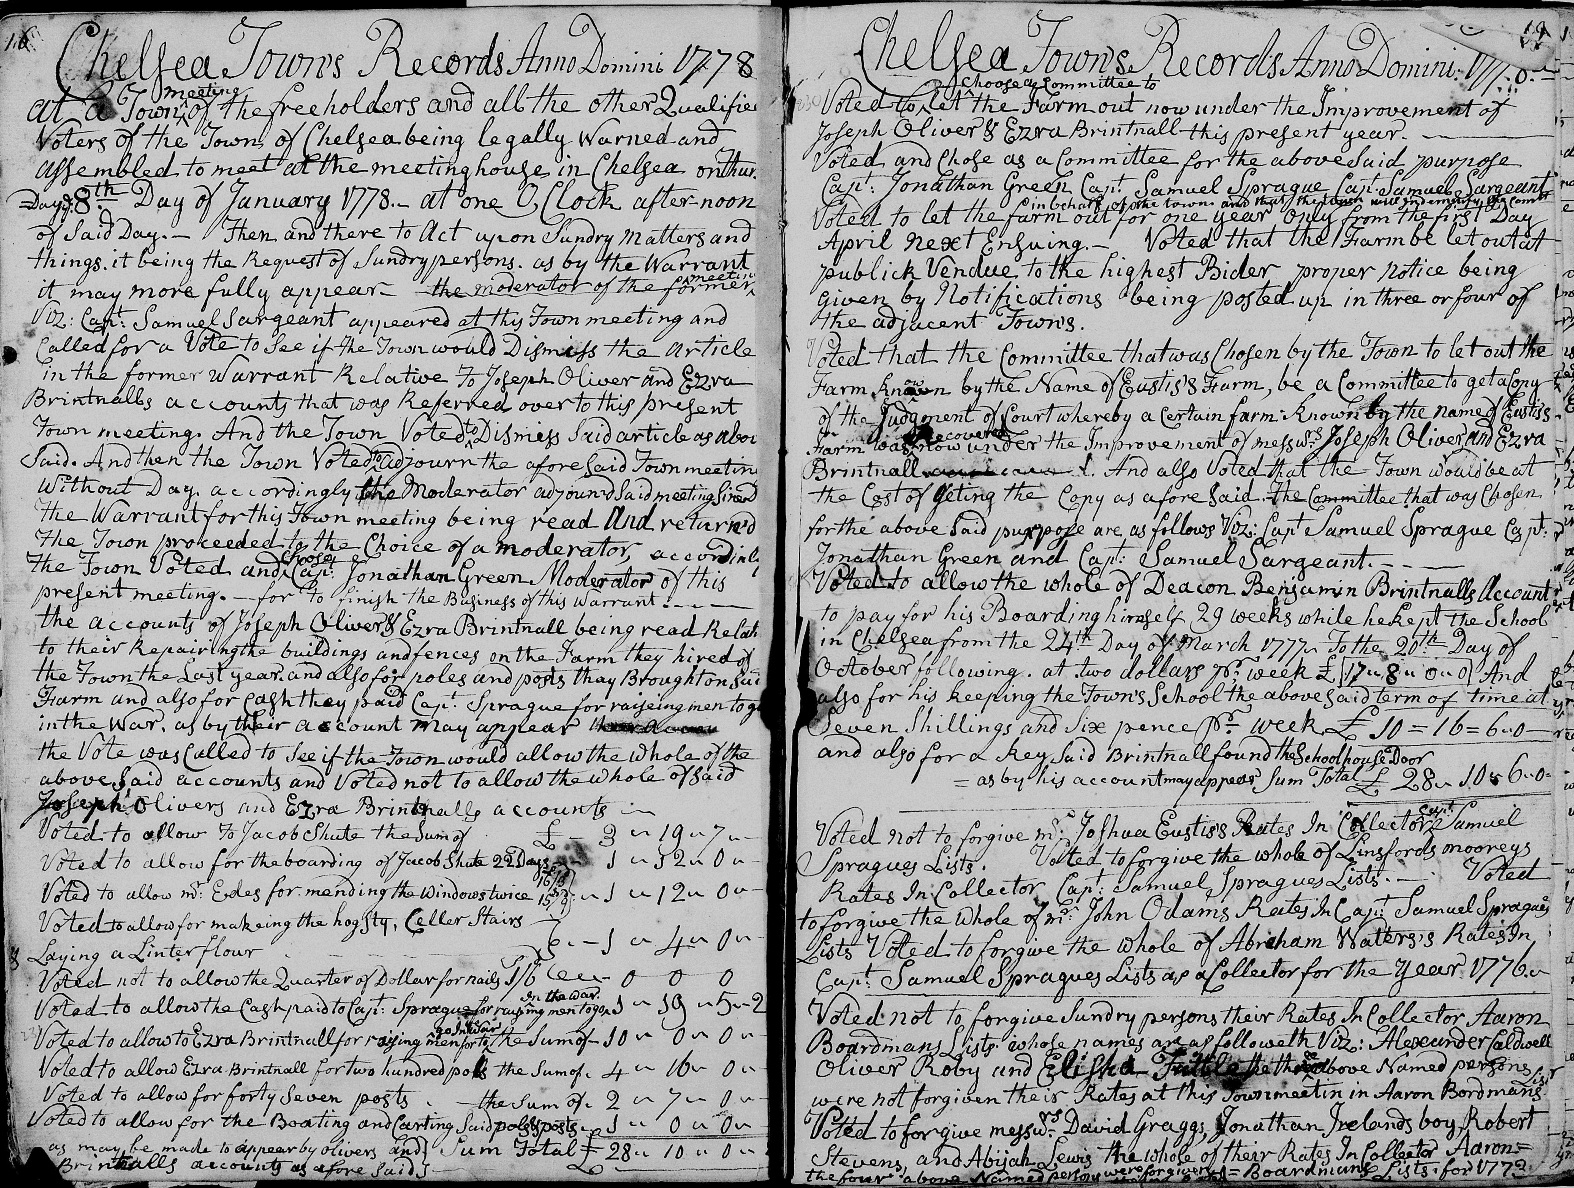 16
Chelsea Town's Records Anno Domini 1778
meeting
at a Town, of the freeholders and all the other Qualifie
Voters of the Town of Chelsea being legally Warned and
assembled to meet at the meetinghouse in Chelsea on Thur
=Day ye 8th Day of January 1778.- at one O,Clock after-noon
of Said Day.- Then and there to Act upon Sundry Matters and
things. it being the Request of Sundry persons. as by the Warrant
it may more fully appear- the moderator of the former meetin
Viz: Capt: Samuel Sargeant appeared at this Town meeting and
Called for a Vote to See if the Town would Dismiss the article
in the former Warrant Relative To Joseph Oliver and Ezra
Brintnalls accounts that was Referred over to this present
Town meeting. And the Town Voted to Dismiss Said article as abov
Said. And then the Town Voted to adjourn the afore Said Town meetin
Without Day accordingly the Moderator adjournd Said meeting
the Warrant for this Town meeting being read and returned
the Town proceeded to the Choice of a moderator, accordinly
the Town Voted and Chose Capt: Jonathan Green Moderator of this
present meeting.- for to finish the Business of this Warrant.- - -
the accounts of Joseph Oliver & Ezra Brintnall being read Relati
to their Repairing the buildings and fences on the Farm they hired of
the Town the Last year. and also for poles and posts thay Brought on Said
Farm and also for Cash they paid Capt: Sprague for raiseing men to go
in the War. as by their account may appear
the Vote was Called to See if the Town would allow the whole of the
above Said accounts and Voted not to allow the whole of Said
Joseph Olivers and Ezra Brintnalls accounts -
Voted to allow To Jacob Shute the Sum of £ - 3 " 19 " 7 "
Voted to allow for the boarding of Jacob Shute 22 Days - 1 " 12 " 0 "
Voted to allow mr: Eedes for mending the Windows twice - 1 " 12 " 0 "
Voted to allow for makeing the hog Sty, Celler Stairs
Laying a Linter flour - 1 " 4 " 0 "
Voted not to allow the Quarter of Dollar for nails 1/6 - 0 0 0
in the War.
Voted to allow the Cash paid to Capt: Sprague for raising men to go - 1 " 19 " 5 " 2
go In War
Voted to allow to Ezra Brintnall for raising men for to the Sum of - 10 " 0 " 0 "
Voted to allow Ezra Brintnall for two hundred pols the Sum of. 4 " 16 " 0 "
Voted to allow for forty Seven posts . the Sum of. 2 " 7 " 0 "
Voted to allow for the Boating and Carting Said pols & posts - 1 " 0 " 0 "
as may be made to appear by olivers and Sum Total £ 28 " 10 " 0 "
Brintnalls accounts as afore Said
Chelsea Town's Records Anno Domini: 177
Choose a Committee to
Voted to Let the Farm out now under the Improvement of
Joseph Oliver & Ezra Brintnall this present year.
Voted and Chose as a Committee for the above Said purpose
Capt: Jonathan Green Capt: Samuel Sprague Capt: Samuel Sargeant
in behalf of the town and that the town will indemnify the
Voted to let the farm out for one year only from the first Day
April next Ensuing.- Voted that the Farm be let out at
publick Vendue to the highest Bider proper notice being
given by Notifications being posted up in three or four of
the adjacent Town's.
Voted that the Committee that was Chosen by the Town to let out the
Farm known by the Name of Eustis's Farm, be a Committee to get a Copy
of the Judgment of Court whereby a Certain farm: known by the name of Eustis's
recovered
Farm was now under the Improvement of messrs Joseph Oliver and Ezra
Brintnall. And also Voted that the Town would be at
the Cost of geting the Copy as afore Said the Committee that was Chosen
for the above Said purpose are, as follows Viz: Capt Samuel Sprague Capt:
Jonathan Green and Capt: Samuel Sargeant. - - -
Voted to allow the whole of Deacon Benjamin Brintnalls Account
to pay for his Boarding himself 29 weeks while he kept the School
in Chelsea from the 24th Day of March 1777 " To the 20th Day of
October following. at two dollars pr. week £ 17 " 8 " 0 " 0 And
also for his keeping the Town's School the above Said term of time at
Seven Shillings and Six pence pr week £ 10 = 16 = 6 " 0
and also for a key Said Brintnall found the Schoolhouse Door
= as by his account may appear Sum Total £ 28 " 10 " 6 " 0
Voted not to forgive mr: Joshua Eustis's Rates In Collector Capt: Samuel
Spragues Lists. Voted to forgive the whole of Linsfords mooreys
Rates In Collector Capt: Samuel Spragues Lists.- Voted
to forgive the whole of mr: John Odams Rates In Capt: Samuel Spragues
Lists Voted to forgive the whole of Abraham Watters's Rates In
Capt: Samuel Spragues Lists as a Collector for the Year 1776.
Voted not to forgive Sundry persons their Rates In Collector Aaron
Boardmans Lists whose names are as followeth Viz: Alexander Caldwell
Oliver Roby and Elisha Tuttle the above Named persons
were not forgiven their Rates at this Town meetin in Aaron Bordmans List
Voted to forgive messrs David Graggs, Jonathan Irelands boy, Robert
Stevens, and Abijah Lewis the whole of their Rates In Collector Aaron=
the four above Named persons were forgiven = Boardmans Lists for 177